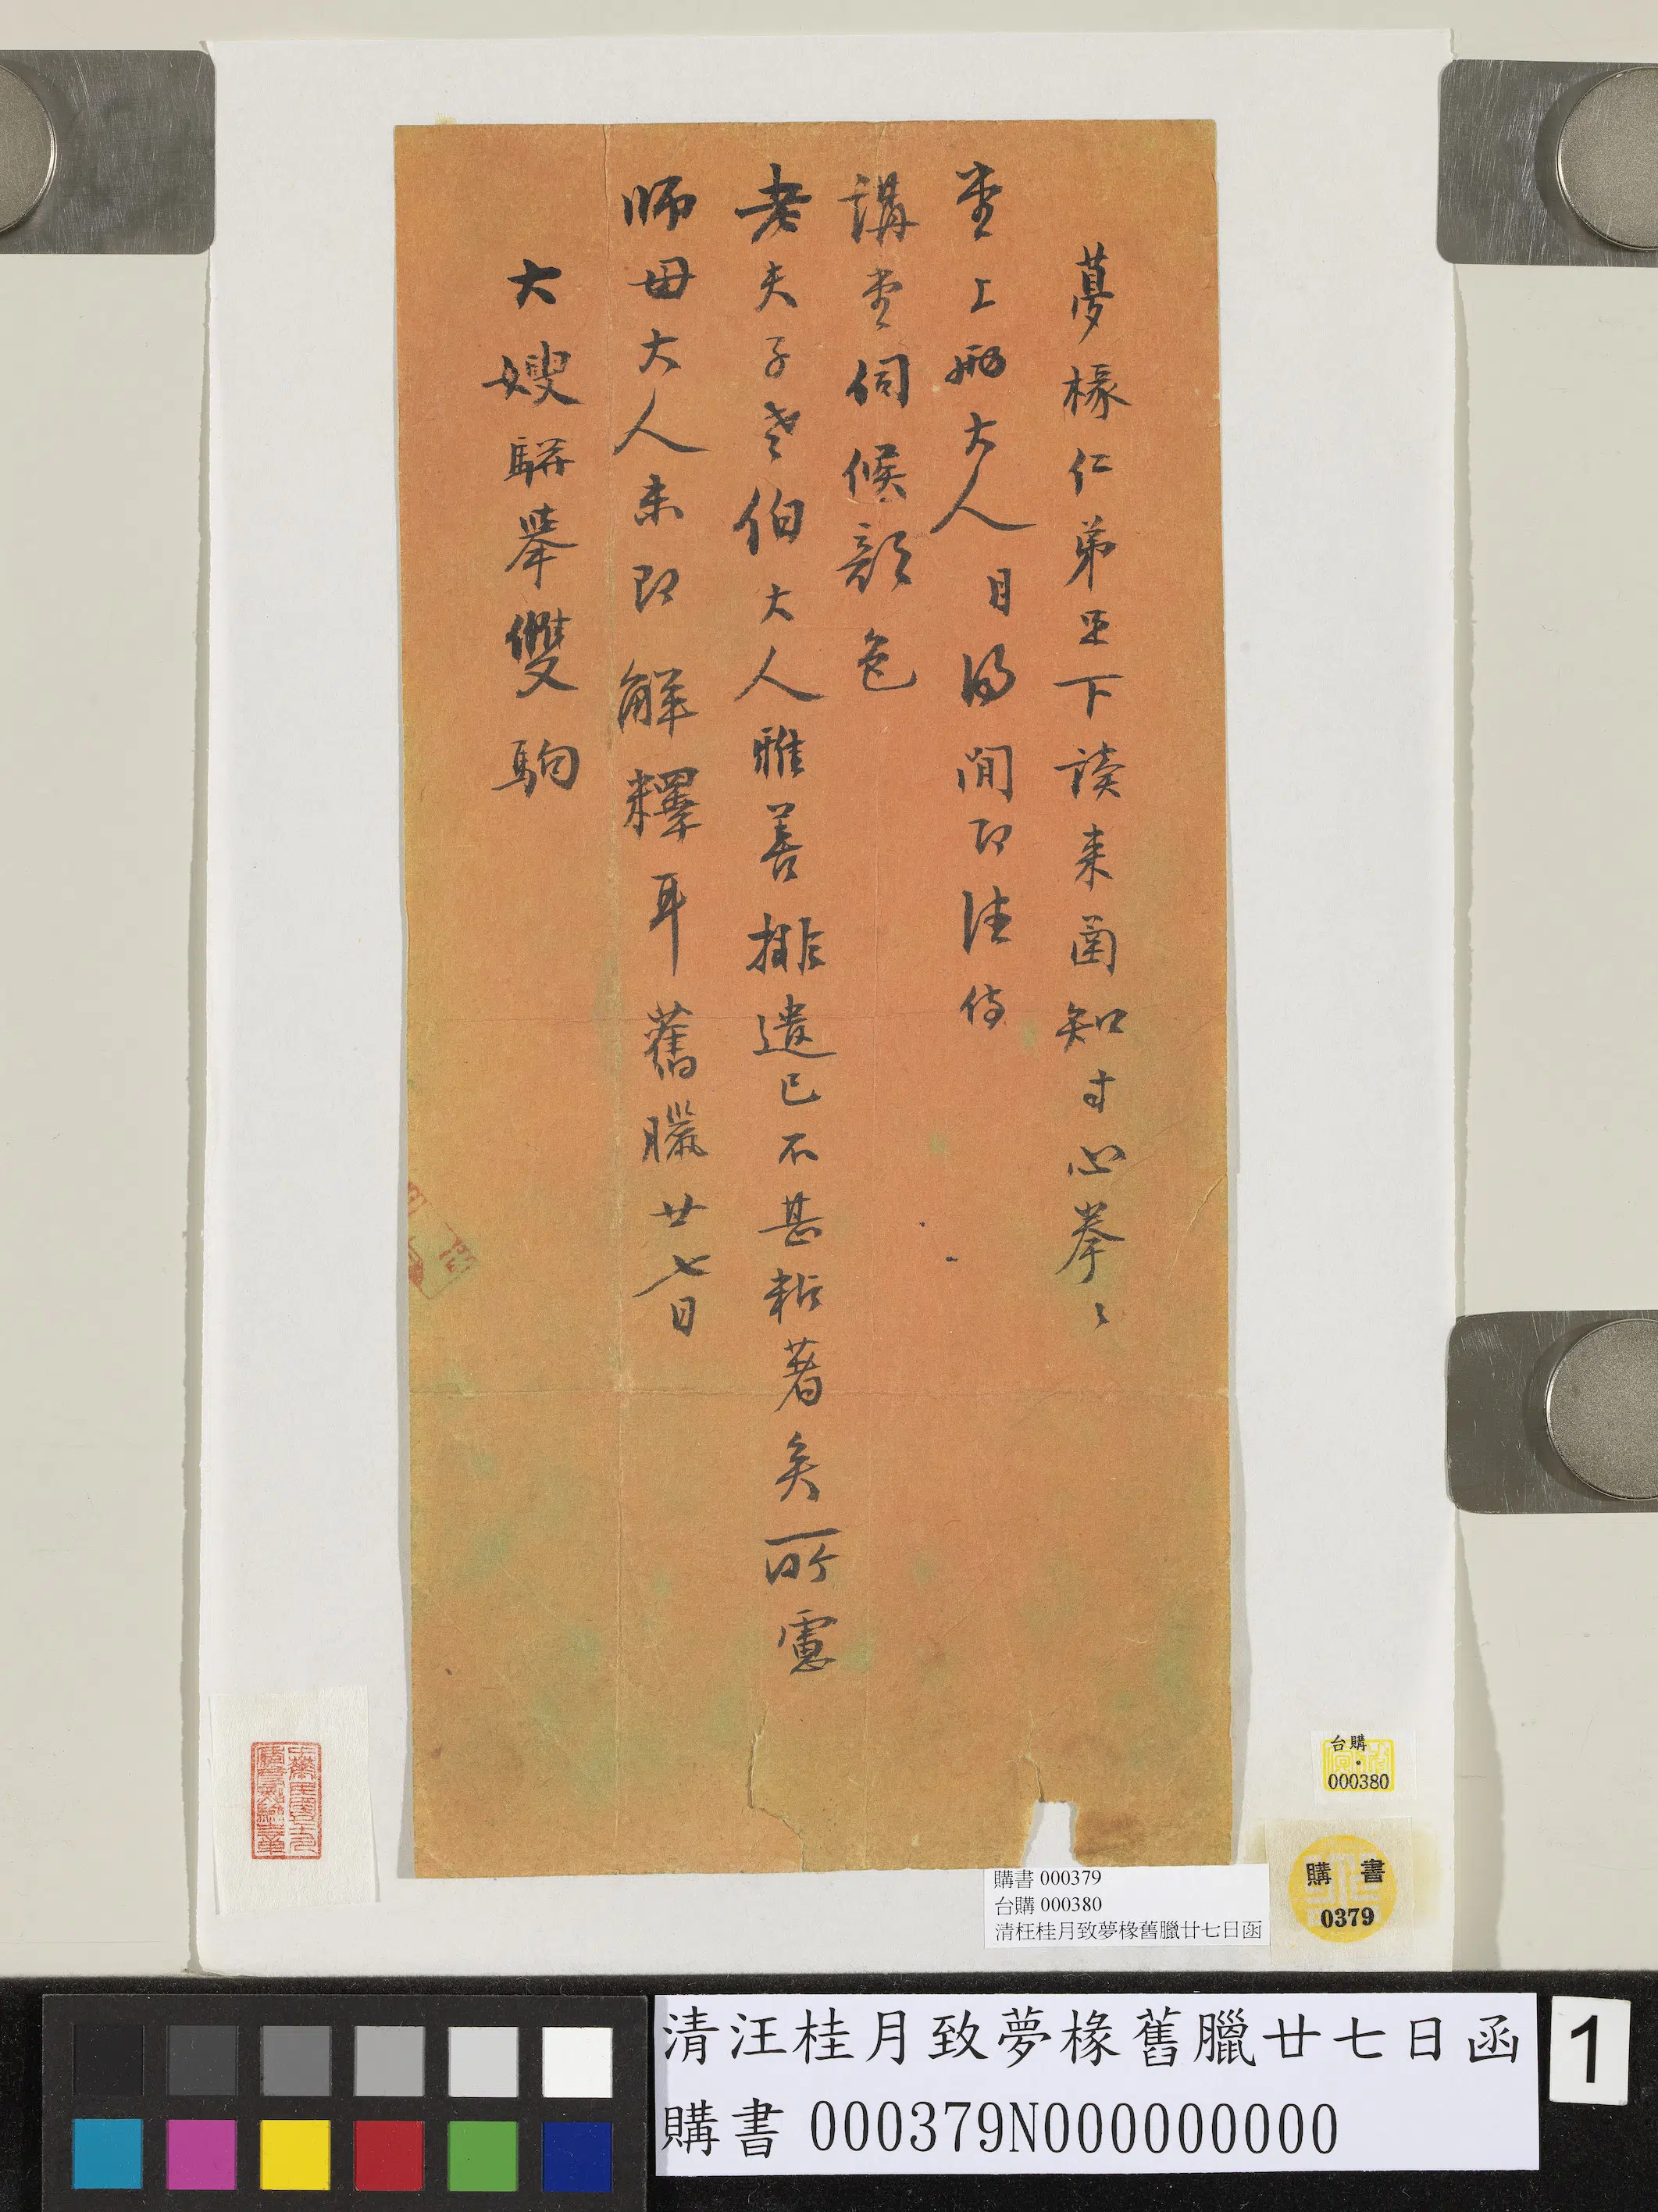 夢椽仁弟足下讀來函知寸心拳〻
堂上兩大人日得閒即往侍
講堂伺候顏色
老夫子老伯大人雅善排遣已不甚粘著矣所慮
師母大人未即解釋耳舊臘廿七日
大嫂駢舉雙駒
購書 000379
台購 000380
清枉桂月致夢椽舊臘廿七日函
台購
000380
購書
0379
清汪桂月致夢椽舊臘廿七日函
購書 000379N000000000
1